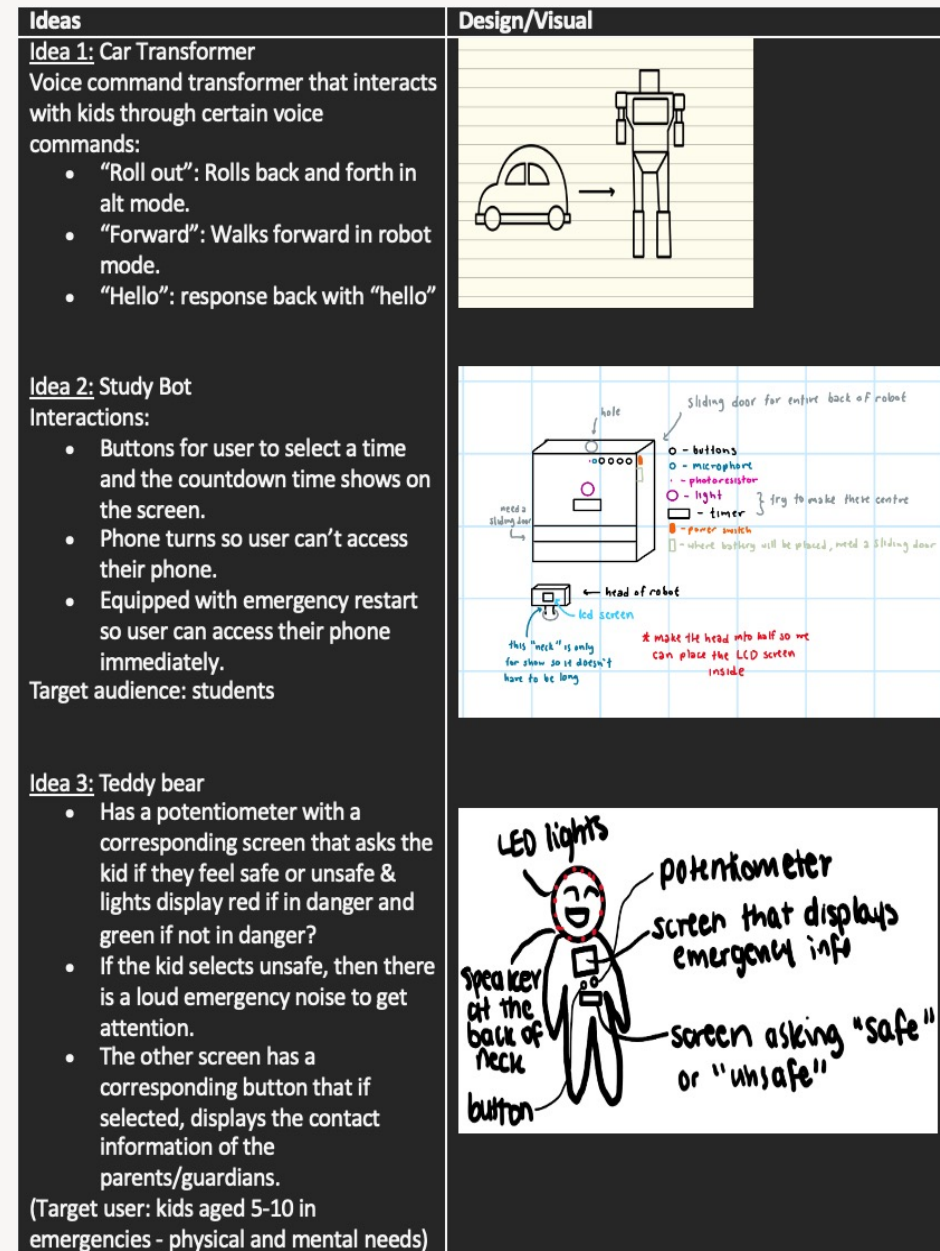 Ideas
Design/Visual
Idea 1: Car Transformer
Voice command transformer that interacts
with kids through certain voice
commands:
• “Roll out”: Rolls back and forth in
alt mode.
• “Forward”: Walks forward in robot
mode.
• “Hello”: response back with “hello”
Idea 2: Study Bot
Interactions:
• Buttons for user to select a time
and the countdown time shows on
the screen.
• Phone turns so user can’t access
their phone.
• Equipped with emergency restart
so user can access their phone
immediately.
Target audience: students
hole
sliding door for entire back of robot
- buttons
- microphone
- photoresistor
- light
- timer
} try to make these centre
- power switch
- where battery will be placed, need a sliding door
need a
sliding door
← head of robot
lcd screen
this "neck" is only
for show so it doesn't
have to be long
* make the head into half so we
can place the LCD screen
inside
Idea 3: Teddy bear
• Has a potentiometer with a
corresponding screen that asks the
kid if they feel safe or unsafe &
lights display red if in danger and
green if not in danger?
• If the kid selects unsafe, then there
is a loud emergency noise to get
attention.
• The other screen has a
corresponding button that if
selected, displays the contact
information of the
parents/guardians.
(Target user: kids aged 5-10 in
emergencies - physical and mental needs)
LED lights
potentiometer
screen that displays
emergency info
speaker
at the
back of
neck
screen asking "safe"
or "unsafe"
button